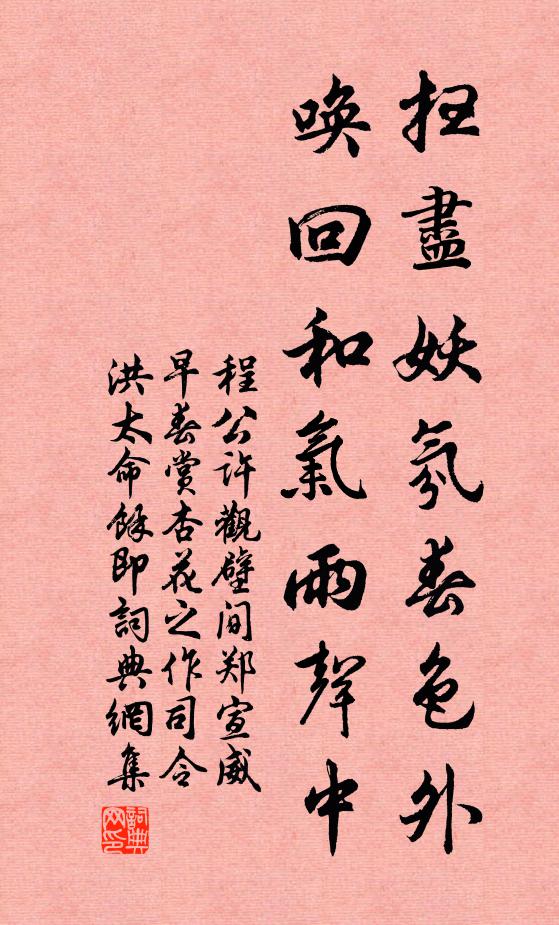 扫盡妖氛春色外
喚回和氣雨聲中
程公许觀壁间郑宣威
早春赏杏花之作司令
洪太命馀即詞典網集
詞典
网印